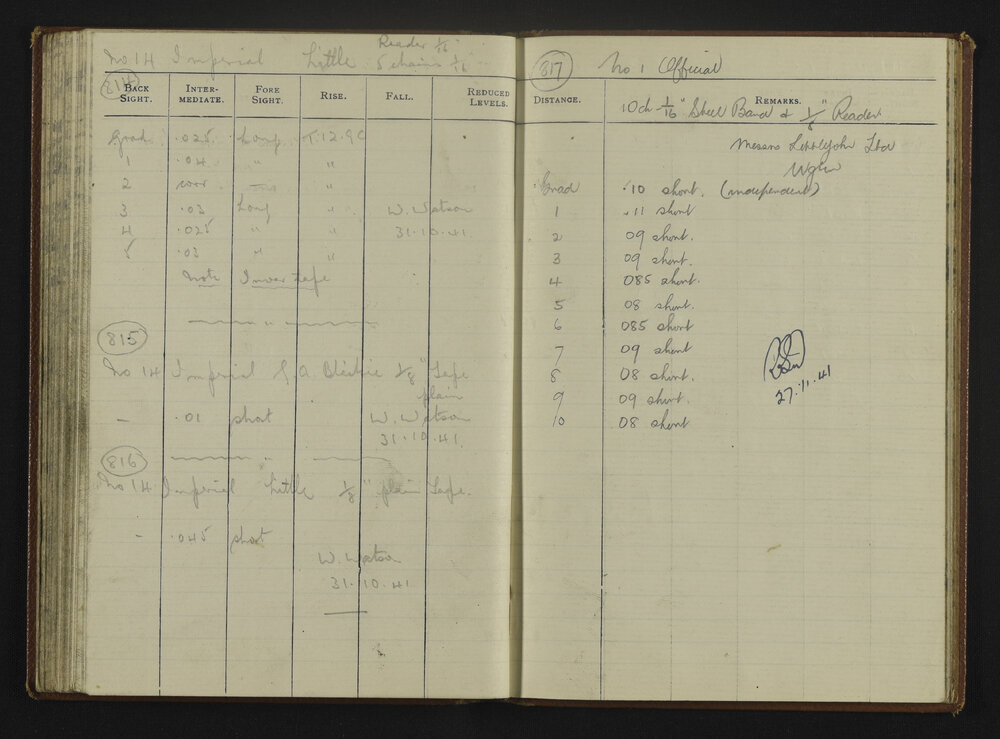 Reader 1/16"
No 14 Imperial Little 5 chains 1/16"
814
BACK SIGHT. INTER-MEDIATE. FORE SIGHT. RISE. FALL. REDUCED LEVELS.
Grad .025 Long T.12.9C
1 .04 " "
2 corr — "
3 .03 Long " W. Watson
4 .025 " " 31.10.41.
5 .03 " "
Note Invar tape
815
No 14 Imperial 1/8" Tape
plain
– .01 short W. Watson
31.10.41.
816
No 14 Imperial Little 1/8" plain Tape.
– .045 short
W. Watson
31.10.41
817 No 1 Official
DISTANCE. REMARKS.
10ch 1/16" Steel Band & 1/8" Reader
Messrs Littlejohn Ltd
Wgtn
Grad .10 short. (independent)
1 .11 short
2 09 short.
3 09 short.
4 085 short.
5 08 short.
6 085 short
7 09 short
8 08 short.
9 09 short.
10 08 short
27.11.41